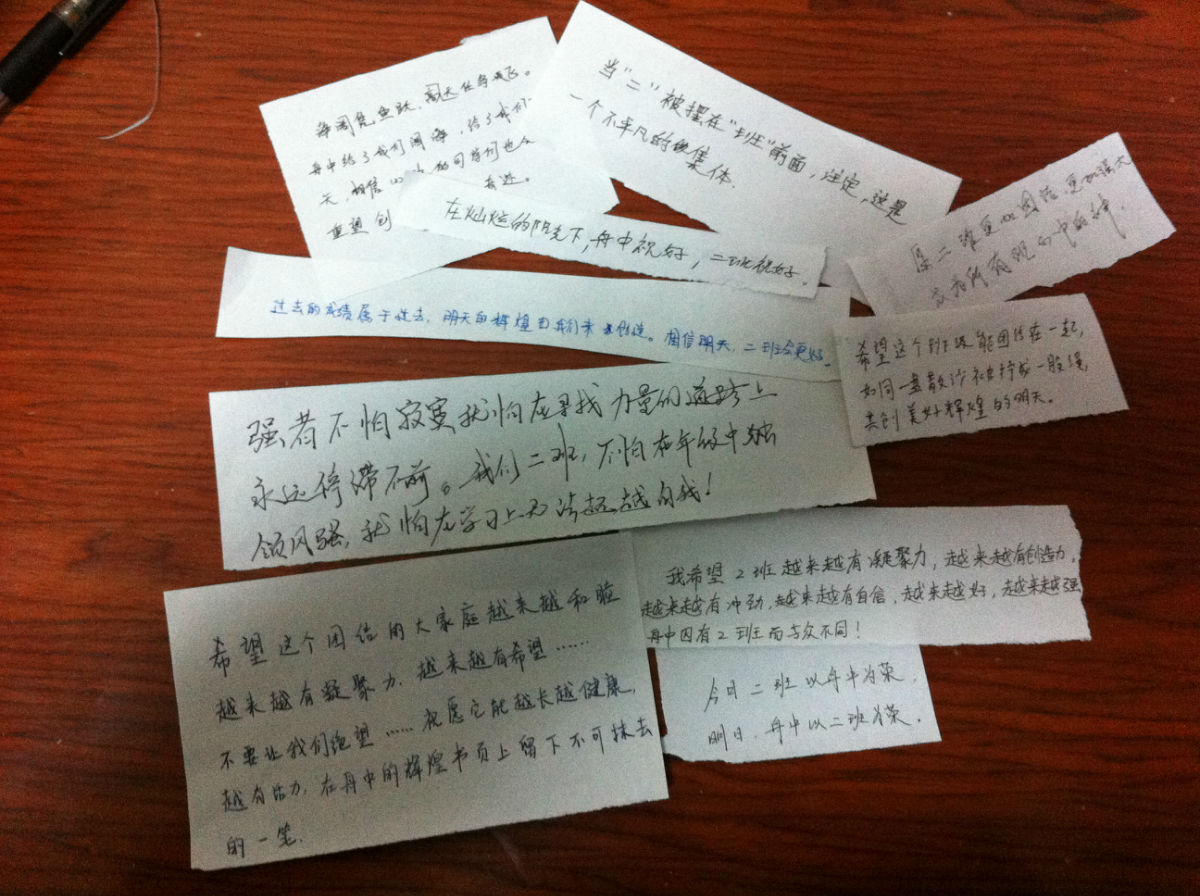 海阔凭鱼跃，高天任鸟飞。
丹中给了我们阔海，给了我们
天，相信
重望 创
当“二”被摆在“班”前面，注定，这是
一个不平凡的集体.
在灿烂的阳光下，丹中祝好，二班祝好.
原二班更加团结，更加强大
过去的成绩属于过去，明天的辉煌由我们来创造。相信明天，二班会更好.
希望这个班级能团结在一起，
如同一盘散沙被拧成一股绳
共创美好辉煌的明天。
强者不怕寂寞就怕在寻找力量的道路上
永远停滞不前。我们二班，不怕在年级中独
领风骚，就怕在学习上无法超越自我！
我希望2班越来越有凝聚力，越来越有创造力，
越来越有冲劲，越来越有自信，越来越好，越来越强
丹中因有2班而与众不同！
希望这个团结的大家庭越来越和睦
越来越有凝聚力，越来越有希望……
不要让我们绝望……祝愿它能越长越健康，
越有活力，在丹中的辉煌书页上留下不可抹去
的一笔.
今日二班以丹中为荣，
明日，丹中以二班为荣.